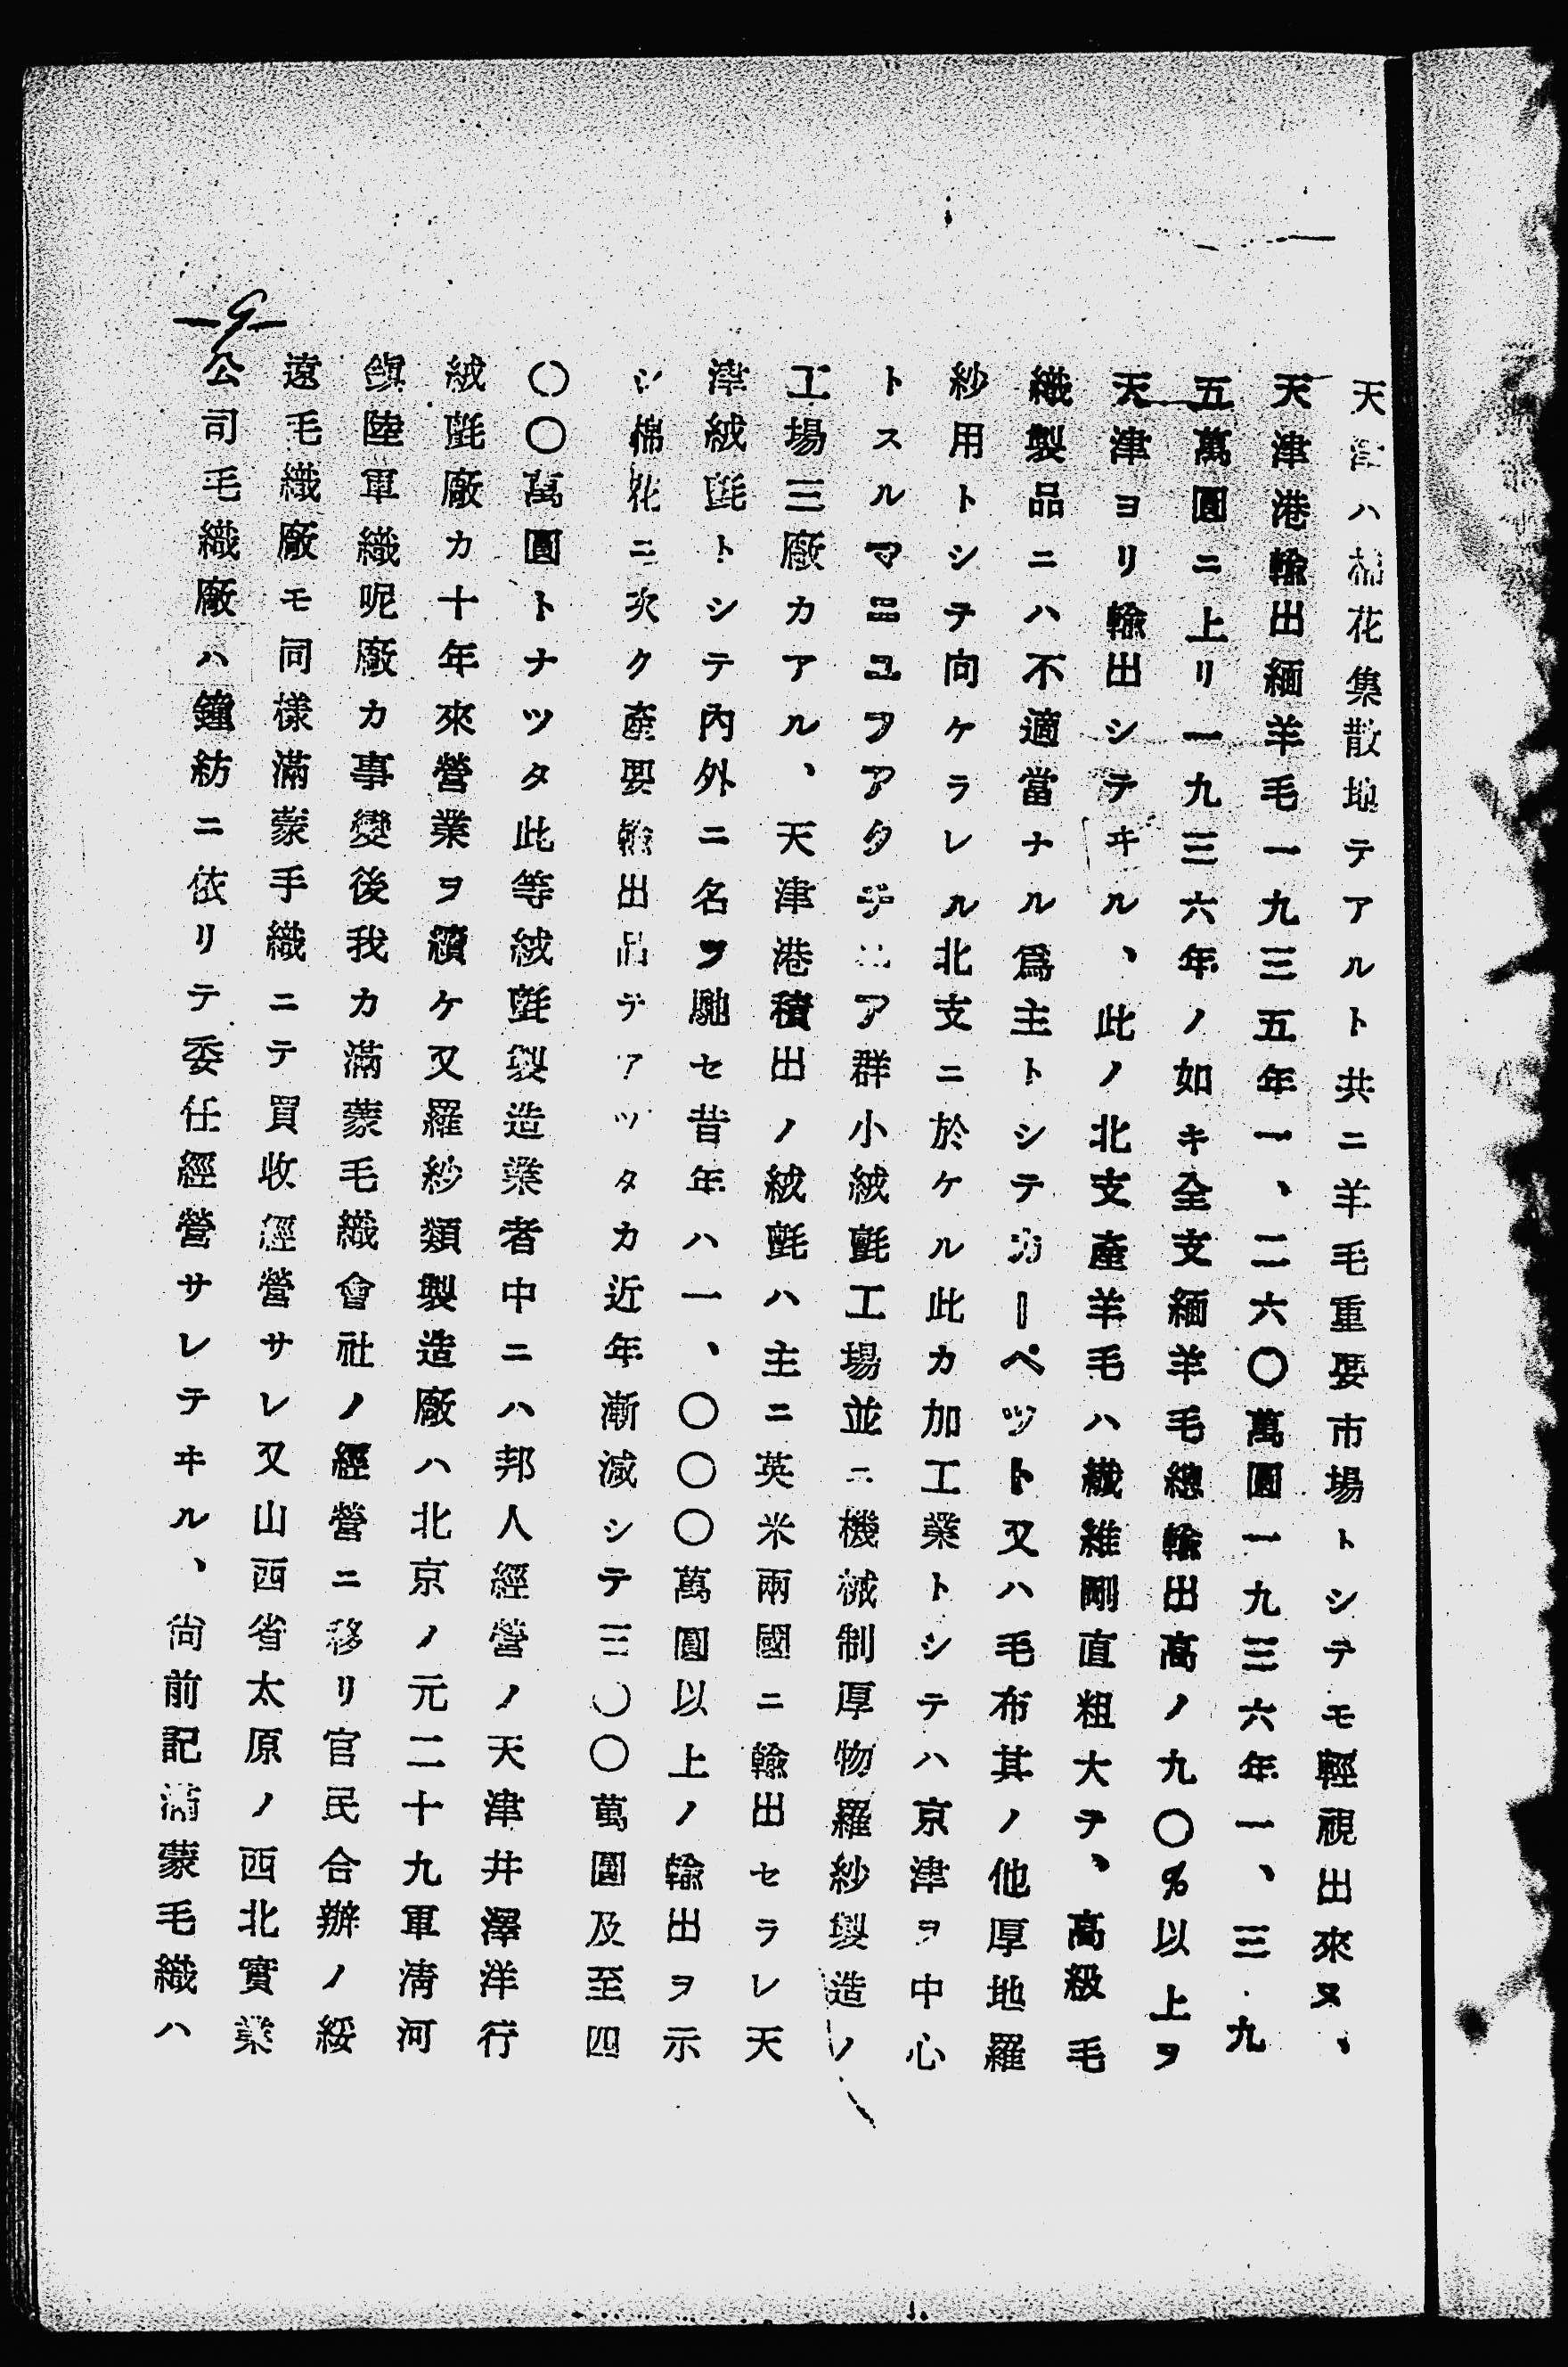 天津ハ棉花集散地テアルト共ニ羊毛重要市場トシテモ輕視出來ヌ、
天津港輸出緬羊毛一九三五年一、二六〇萬圓一九三六年一、三.九
五萬圓ニ上リ一九三六年ノ如キ全支緬羊毛總輸出高ノ九〇%以上ヲ
天津ヨリ輸出シテヰル、此ノ北支產羊毛ハ纎維剛直粗大テ、高級毛
織製品ニハ不適當ナル爲主トシテカーペツト又ハ毛布其ノ他厚地羅
紗用トシテ向ケラレル北支ニ於ケル此カ加工業トシテハ京津ヲ中心
トスルマニユフアクチユア群小絨氈工場並ニ機械制厚物羅紗製造ノ
工場三廠カアル、天津港積出ノ絨氈ハ主ニ英米兩國ニ輸出セラレ天
津絨氈トシテ內外ニ名ヲ馳セ昔年ハ一、〇〇〇萬圓以上ノ輸出ヲ示
シ棉花ニ次ク產要輸出品テアツタカ近年漸減シテ三〇〇萬圓及至四
〇〇萬圓トナツタ此等絨氈製造業者中ニハ邦人經營ノ天津井澤洋行
絨氈廠カ十年來營業ヲ續ケ又羅紗類製造廠ハ北京ノ元二十九軍淸河
鎭陸軍織呢廠カ事變後我カ滿蒙毛織會社ノ經營ニ移リ官民合辦ノ綏
遠毛織廠モ同樣滿蒙手織ニテ買收經營サレ又山西省太原ノ西北實業
公司毛織廠ハ鐘紡ニ依リテ委任經營サレテヰル、尙前記滿蒙毛織ハ
—9—